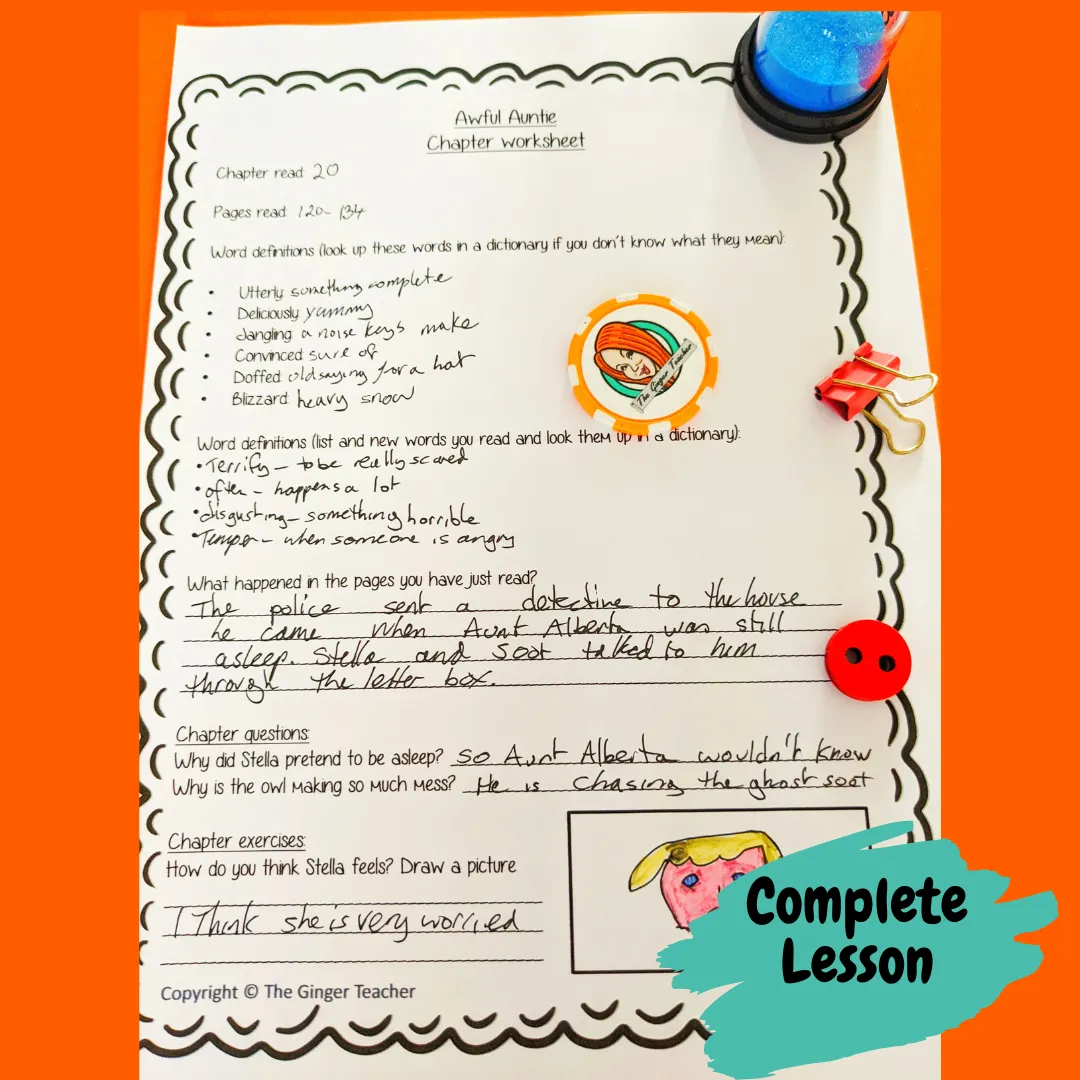 Awful Auntie
Chapter worksheet
Chapter read: 20
Pages read: 120- 134
Word definitions (look up these words in a dictionary if you don't know what they mean):
• Utterly: something complete
• Deliciously: yammy
• Jangling: a noise keys make
• Convinced: sure of
• Doffed: old saying for a hat
• Blizzard: heavy snow
The Ginger Teacher
Word definitions (list and new words you read and look them up in a dictionary):
• Terrify – to be really scared
• often – happens a lot
• disgusting – something horrible
• Temper – when someone is angry
What happened in the pages you have just read?
The police sent a detective to the house
he came when Aunt Alberta was still
asleep. Stella and Soot talked to him
through the letter box.
Chapter questions:
Why did Stella pretend to be asleep? So Aunt Alberta wouldn't know
Why is the owl making so much mess? He is chasing the ghost soot
Chapter exercises:
How do you think Stella feels? Draw a picture
I Think she is very worried
Copyright © The Ginger Teacher
Complete
Lesson